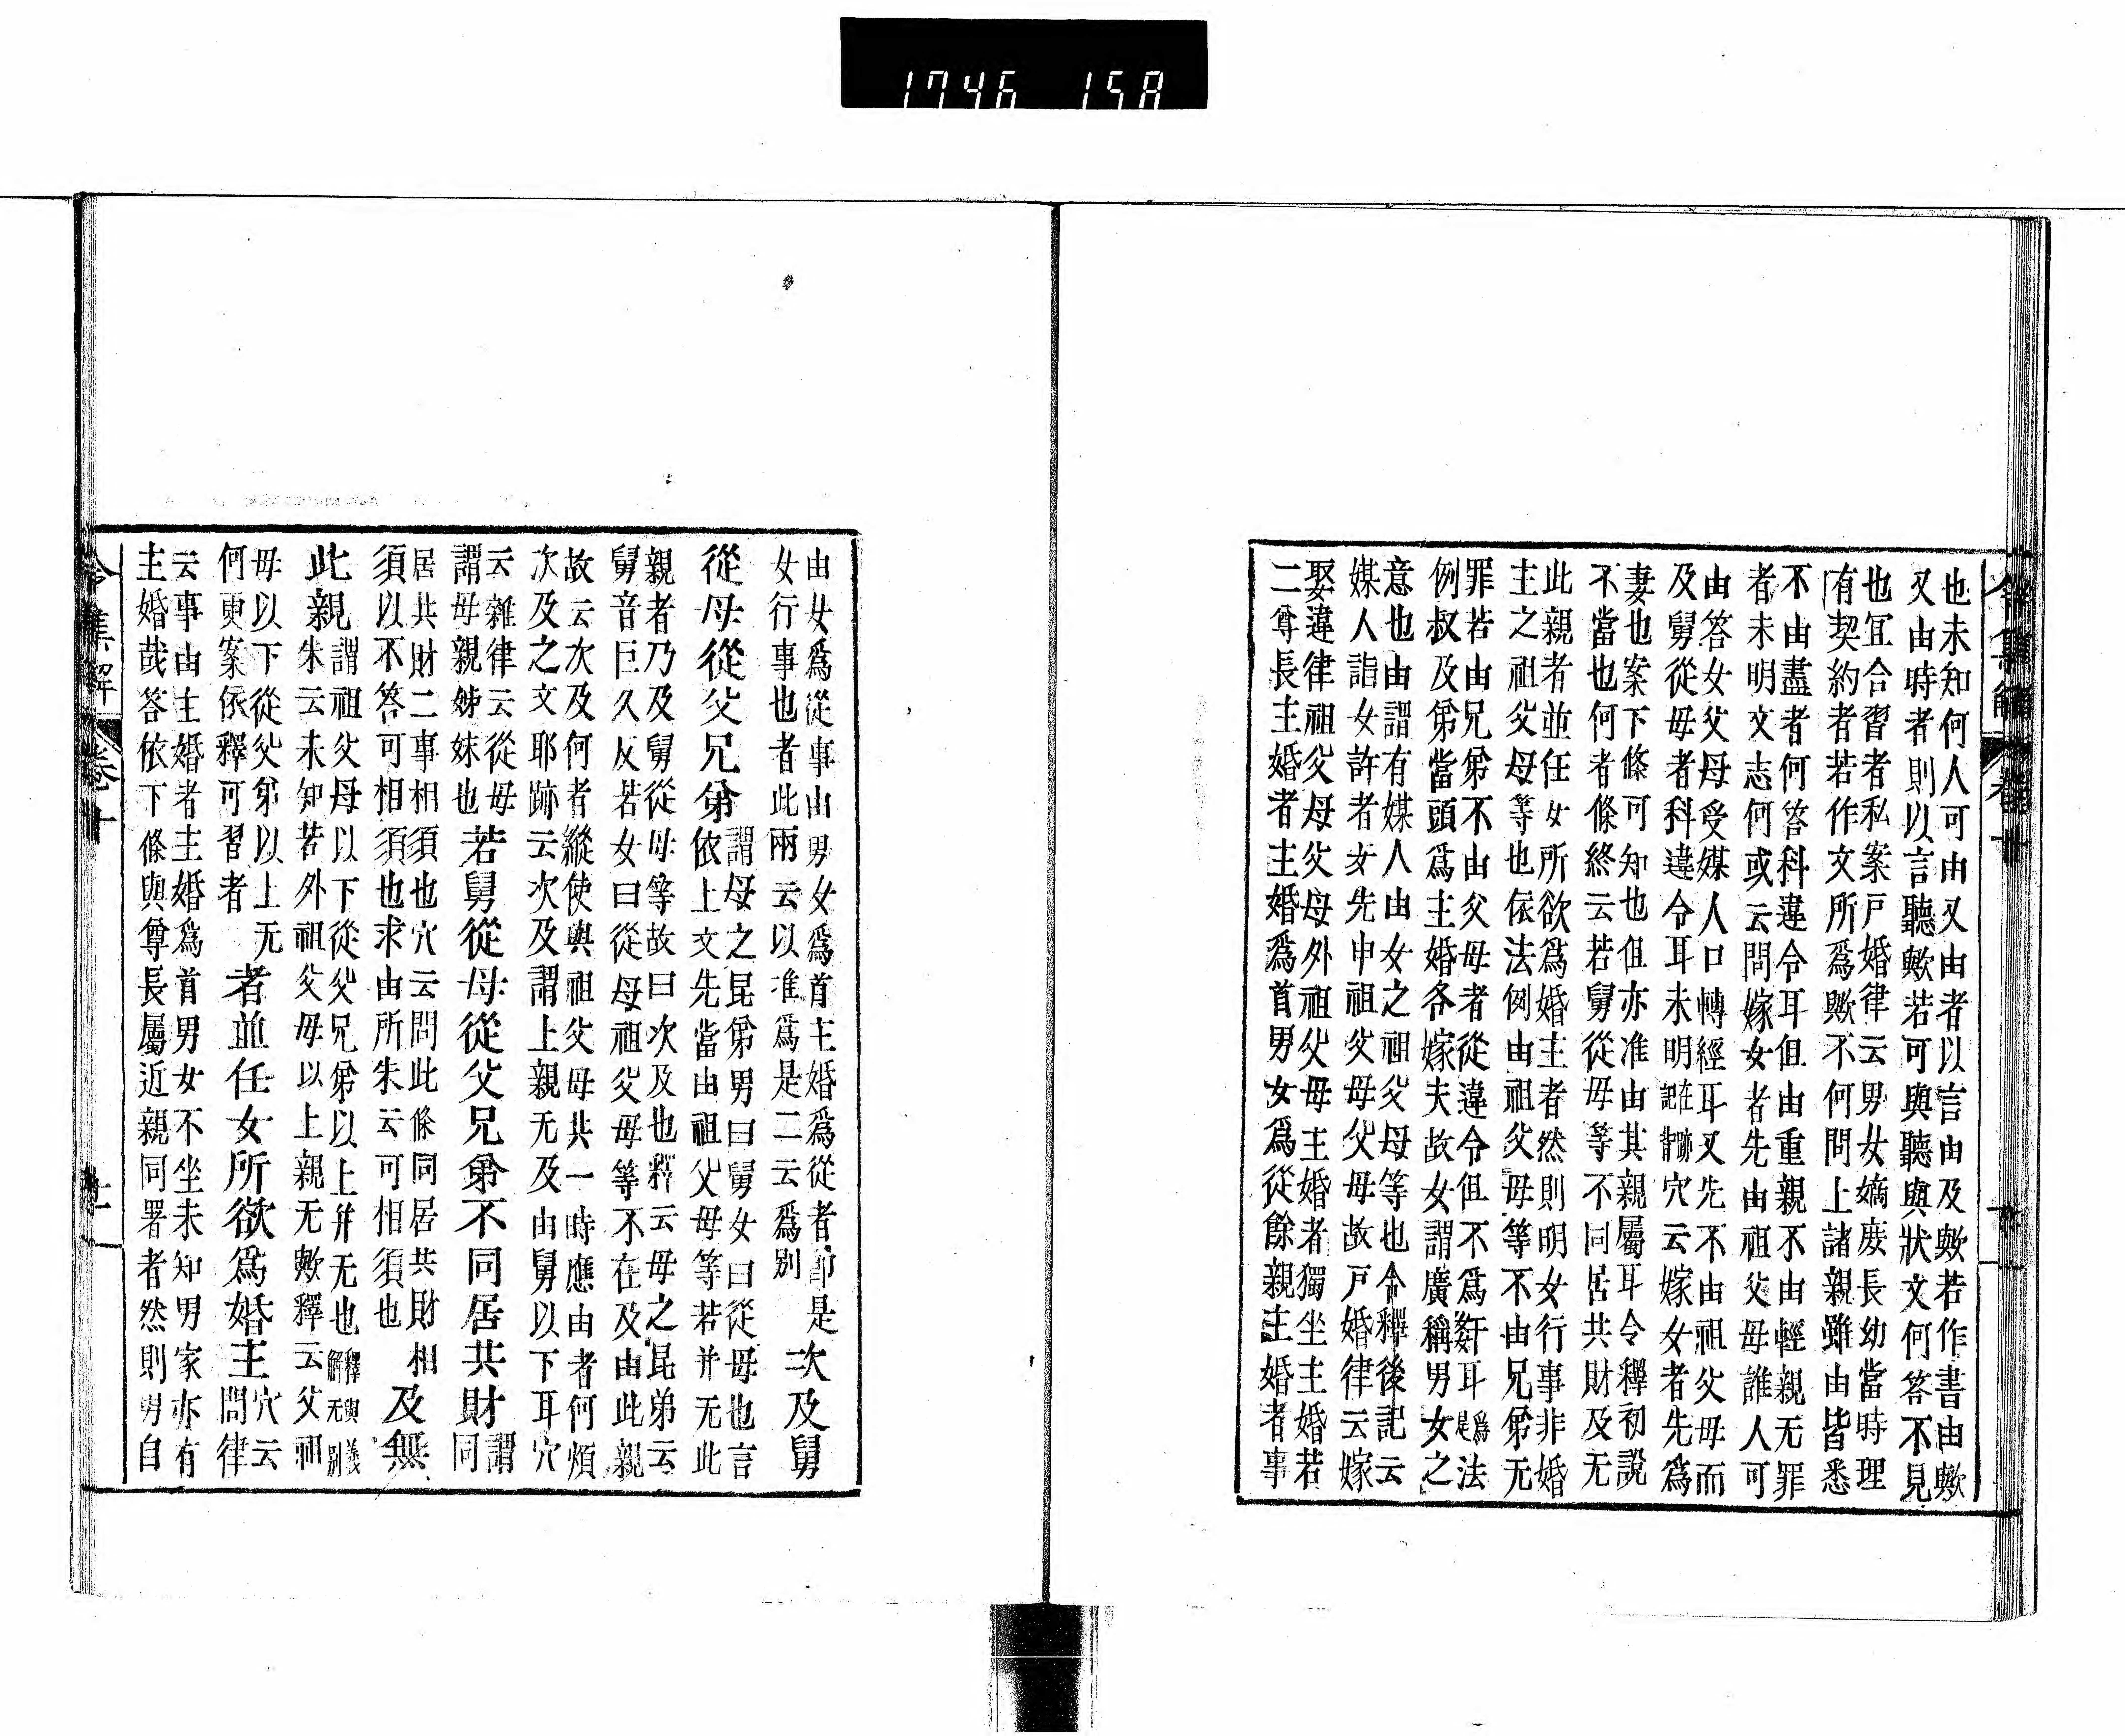 1746 158
也未知何人可由又由者以言由及歟若作書由歟
又由時者則以言聽歟若可與聽與狀文何答不見
也宜合習者私案戸婚律云男女嫡庻長幼當時理
有契約者若作文所爲歟不何問上諸親雖由皆悉
不由盡者何答科違令耳但由重親不由輕親无罪
者未明文志何或云問嫁女者先由祖父母誰人可
由答女父母受媒人口轉經耳又先不由祖父母而
及舅從母者科違令耳未明在跡記背穴云嫁女者先爲
妻也案下條可知也但亦准由其親屬耳令釋初說
不當也何者條終云若舅從母等不同居共財及无
此親者並任女所欲爲婚主者然則明女行事非婚
主之祖父母等也依法例由祖父母等不由兄弟无
罪若由兄弟不由父母者從違令但不爲姧耳爲是法
例叔及弟當頭爲主婚各嫁夫故女謂廣稱男女之
意也由謂有媒人由女之祖父母等也令釋後記云
媒人詣女許者女先申祖父母父母故戸婚律云嫁
娶違律祖父母父母外祖父母主婚者獨坐主婚若
二尊長主婚者主婚爲首男女爲從餘親主婚者事
由女爲從事由男女爲首主婚爲從者卽是
女行事也者此兩云以准爲是二云爲別
次及舅
從母從父兄弟
謂母之昆弟男曰舅女曰從母也言
依上文先當由祖父母等若并无此
親者乃及舅從母等故曰次及也釋云母之昆弟云
舅音巨久反若女曰從母祖父母等不在及由此親
故云次及何者縱使與祖父母共一時應由者何煩
次及之文耶跡云次及謂上親无及由舅以下耳穴
云雜律云從母
謂母親姊妹也
若舅從母從父兄弟不同居共財
謂同
居共財二事相須也穴云問此條同居共財相
須以不答可相須也求由所朱云可相須也
及無
此親
謂祖父母以下從父兄弟以上并无也釋與義
朱云未知若外祖父母以上親无歟釋云父祖解无別
母以下從父弟以上无
何更案依釋可習者
者並任女所欲爲婚主
穴云
問律
云事由主婚者主婚爲首男女不坐未知男家亦有
主婚哉答依下條與尊長屬近親同署者然則男自
令集解 卷十